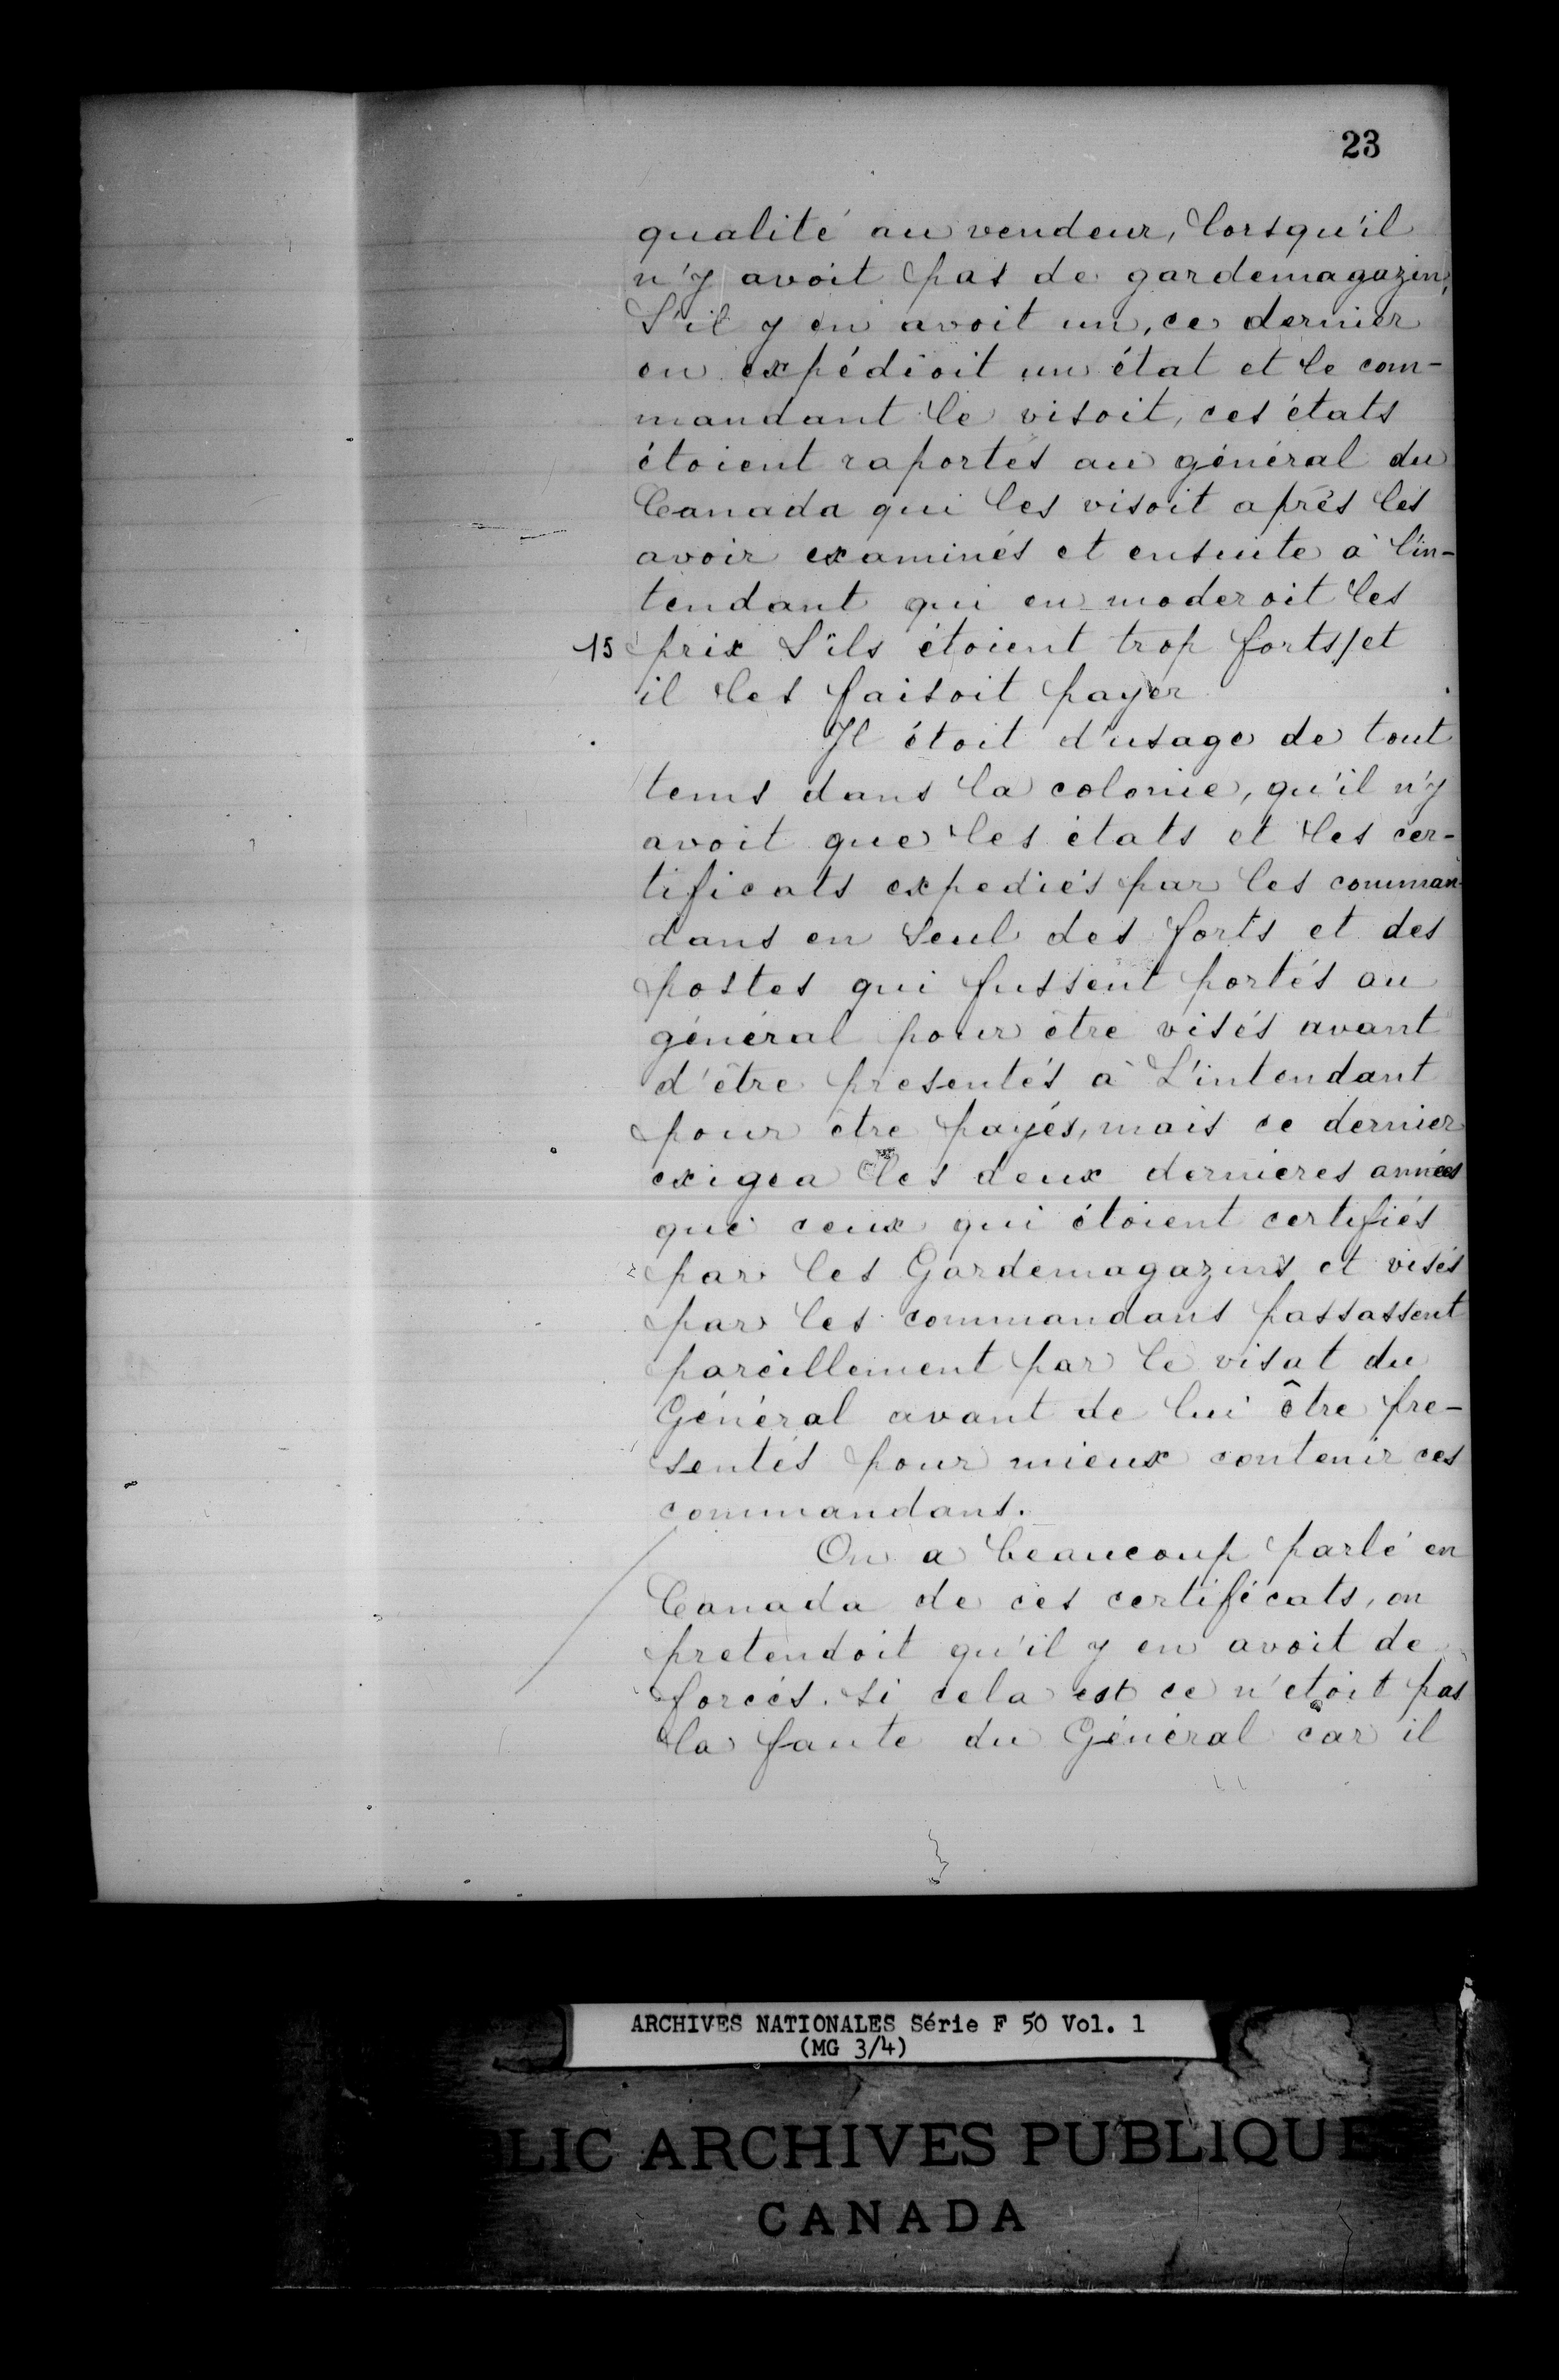 23
qualité au vendeur, lorsqu'il
n'y avoit pas de gardemagazin,
S'il y en avoit un, ce dernier
en expédioit un état et le com-
mandant le visoit, ces états
étoient raportés au général du
Canada qui les visoit après les
avoir examinés et ensuite à l'in-
tendant qui en moderoit les
15 prix S'ils étoient trop forts/et
il les faisoit payer
Il étoit d'usage de tout
tems dans la colonie, qu'il n'y
avoit que les états et les cer-
tificats expediés par les comman-
dans en Seul des forts et des
postes qui fussent portés au
général pour être visés avant
d'être presentés à L'intendant
pour être payés, mais ce dernier
exigea les deux dernieres années
que ceux qui étoient certifiés
par les Gardemagazins et visés
par les commandans passassent
pareillement par le visat du
Général avant de lui être pre-
sentés pour mieux contenir ces
commandans.
On a beaucoup parlé en
Canada de ces certificats, on
pretendoit qu'il y en avoit de
forcés. si cela est ce n'etoit pas
la faute du Général car il
ARCHIVES NATIONALES Série F 50 Vol. 1
(MG 3/4)
LIC ARCHIVES PUBLIQUE
CANADA